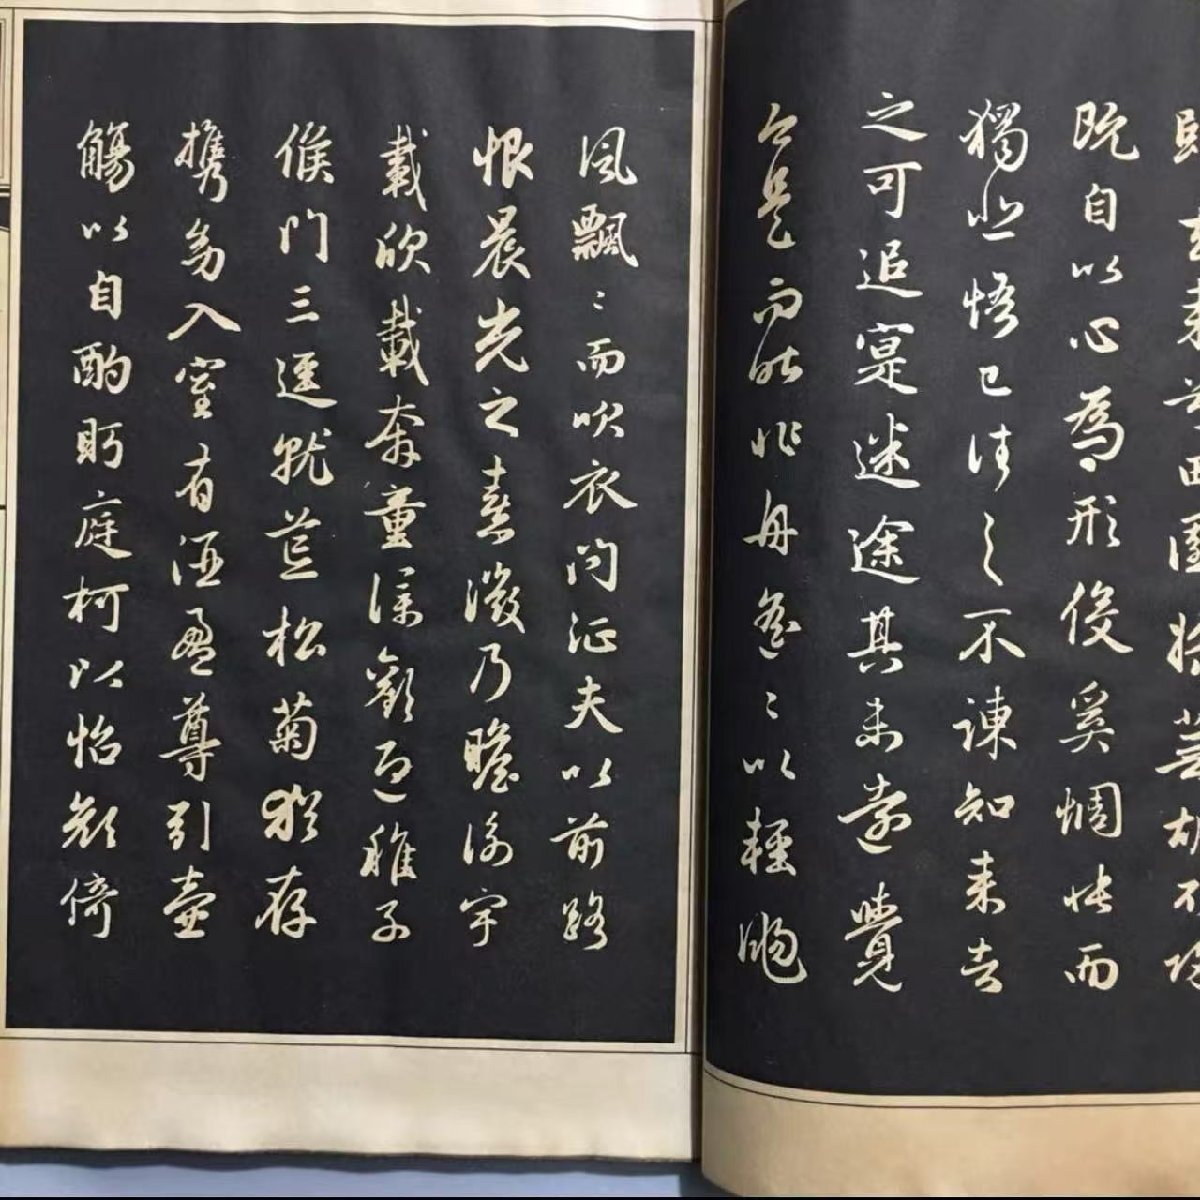 歸去来兮田園将蕪胡不歸
既自以心為形役奚惆悵而
獨悲悟已往之不諫知来者
之可追寔迷途其未遠覺
今是而昨非舟遥〻以輕颺
風飄〻而吹衣問征夫以前路
恨晨光之熹微乃瞻衡宇
載欣載奔童僕歡迎稚子
候門三逕就荒松菊猶存
携幼入室有酒盈尊引壺
觴以自酌眄庭柯以怡顔倚